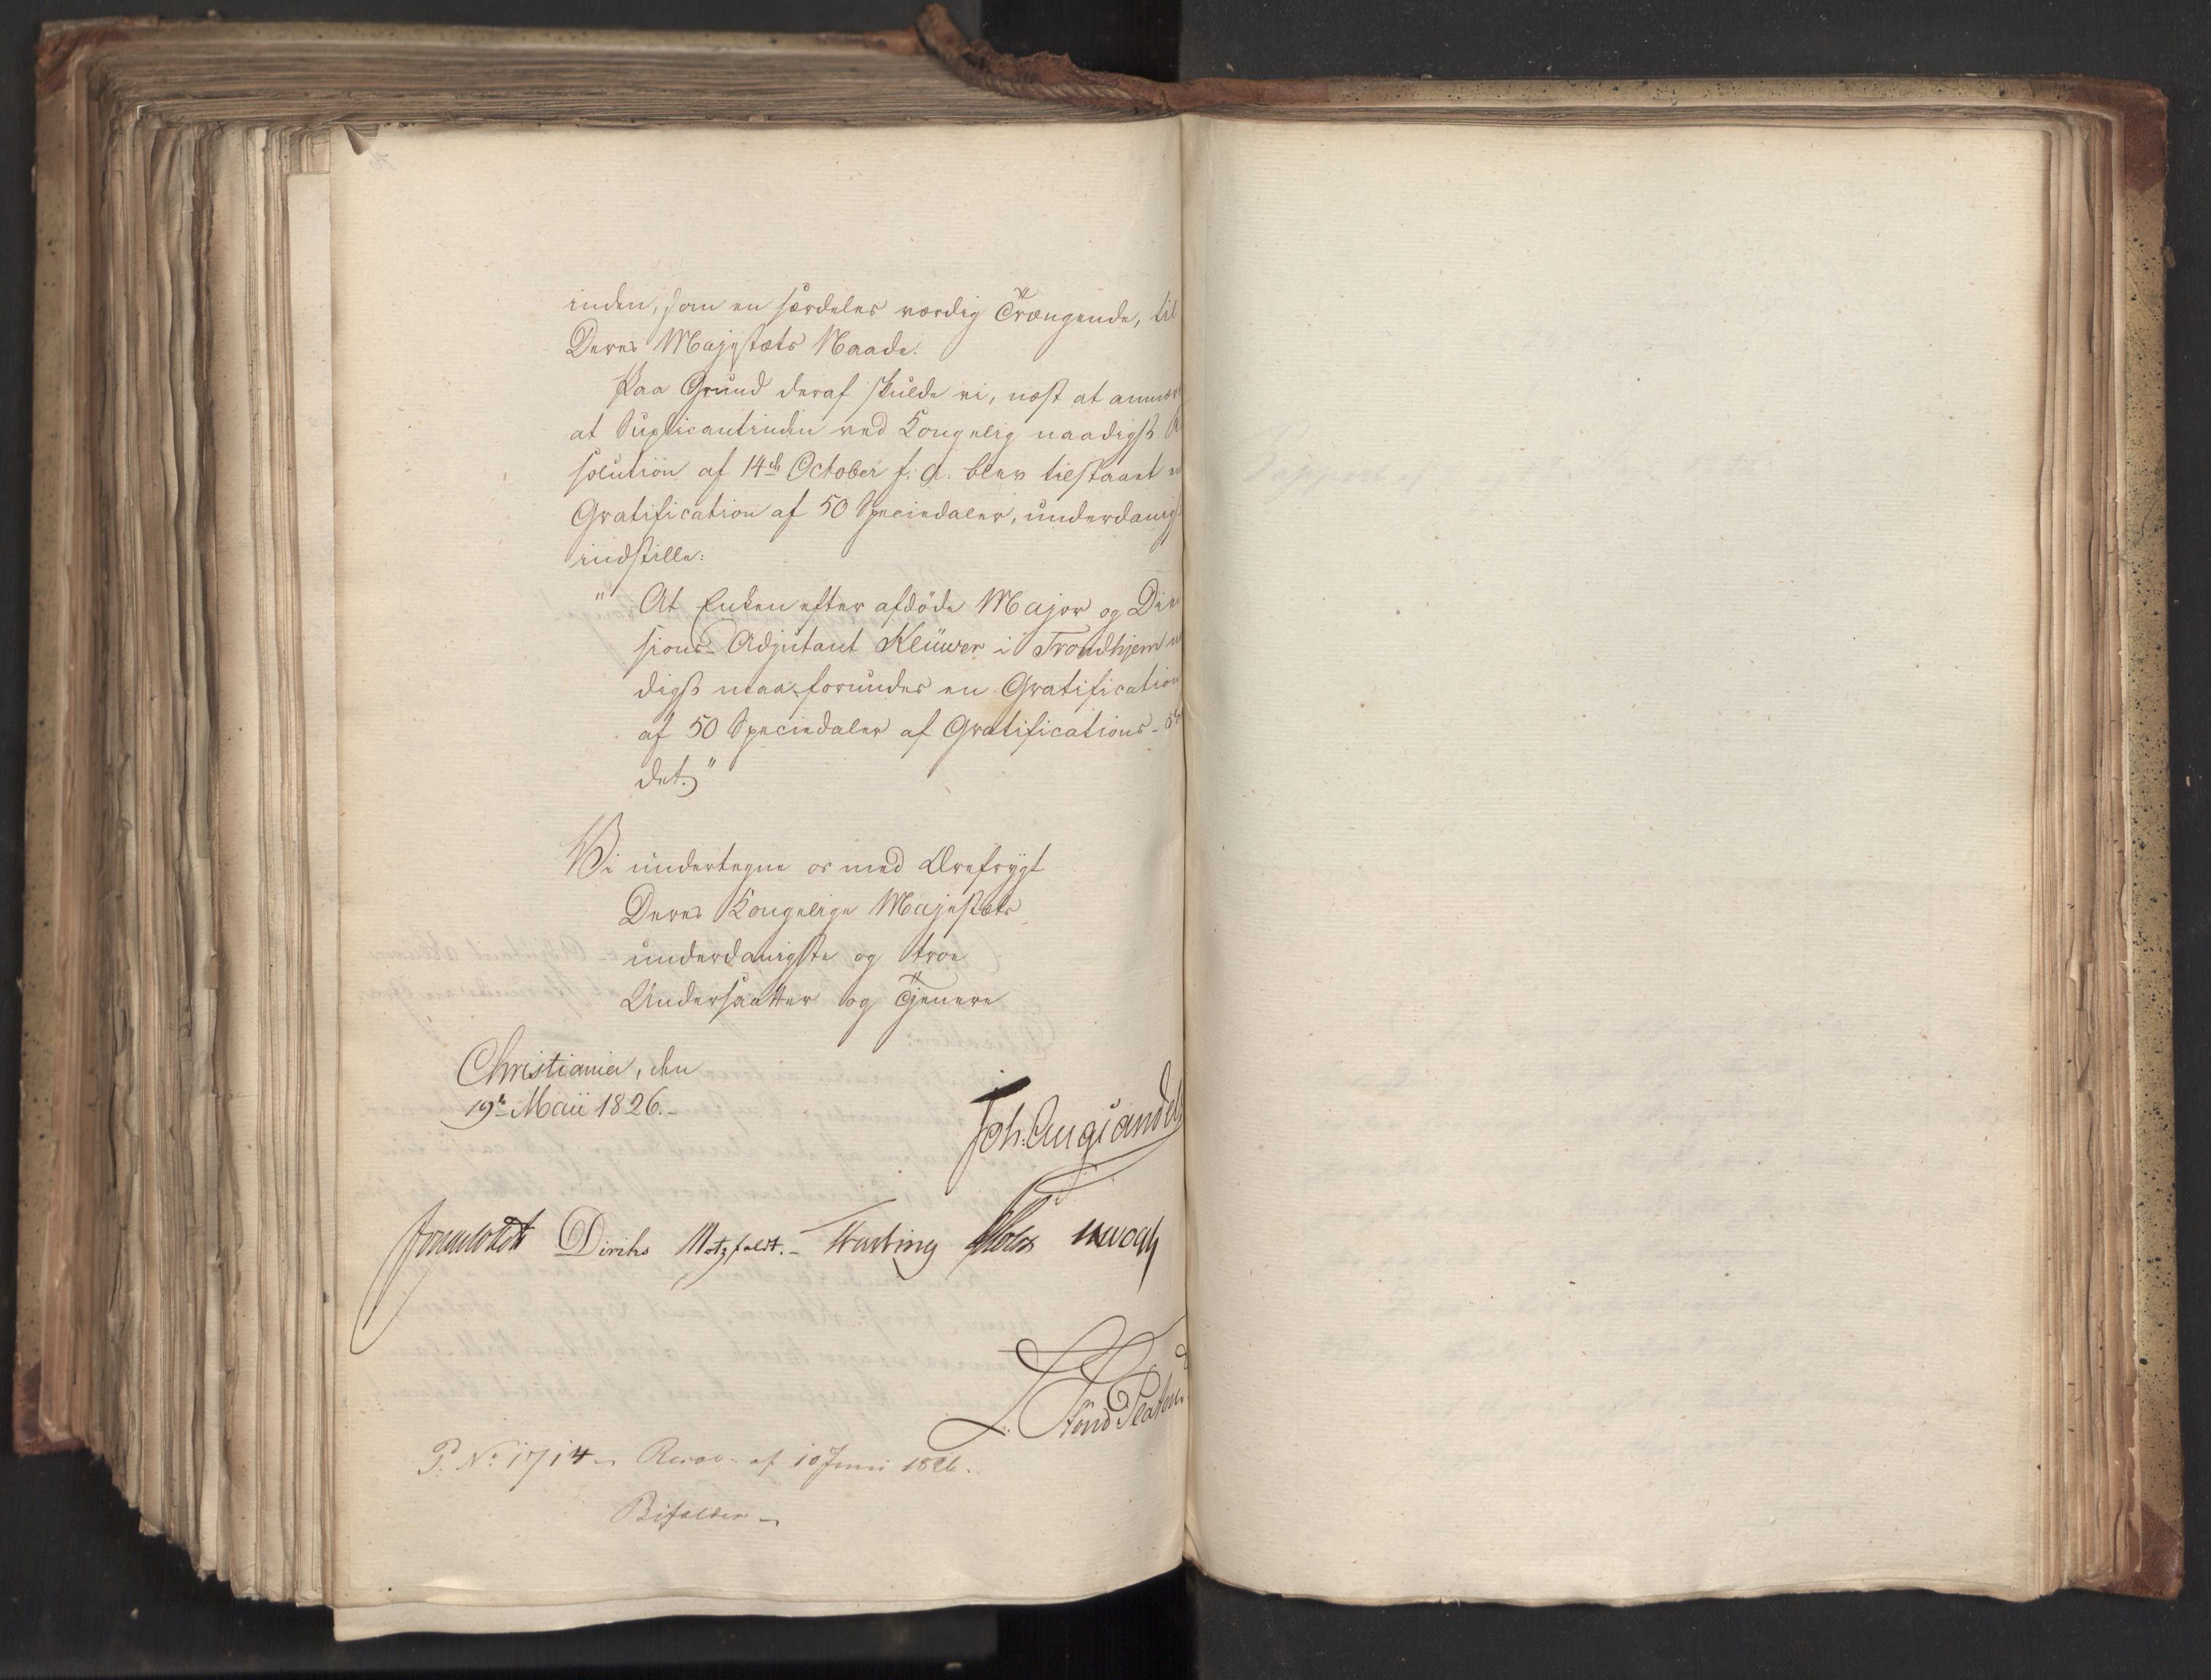 inden, som en særdeles værdig Trængende, til
Deres Majestæts Naade.
Paa Grund deraf skulde vi, næst at anmær
at Suplicantinden ved Kongelig naadigst R
solution af 14de October f. A. blev tilstaaet en
Gratification af 50 Speciedaler, underdanigst
indstille:
" At Enken efter afdöde Major og Divi
sions-Adjutant Klüwer i Trondhjem naa
digst maa forundes en Gratification
af 50 Speciedaler af Gratifications-
det."
Vi undertegne os med Ærefrygt
Deres Kongelige Majestæts
underdanigste og troe
Undersaatter og Tjenere
Christiania, den
19de Maii 1826.
Joh. Aug. Sandels
Sommerhielm Diriks Motzfeldt. Fasting Holst Krogh
P. No 1714 Resol. af 10 Juni 1826.
Bifaldes